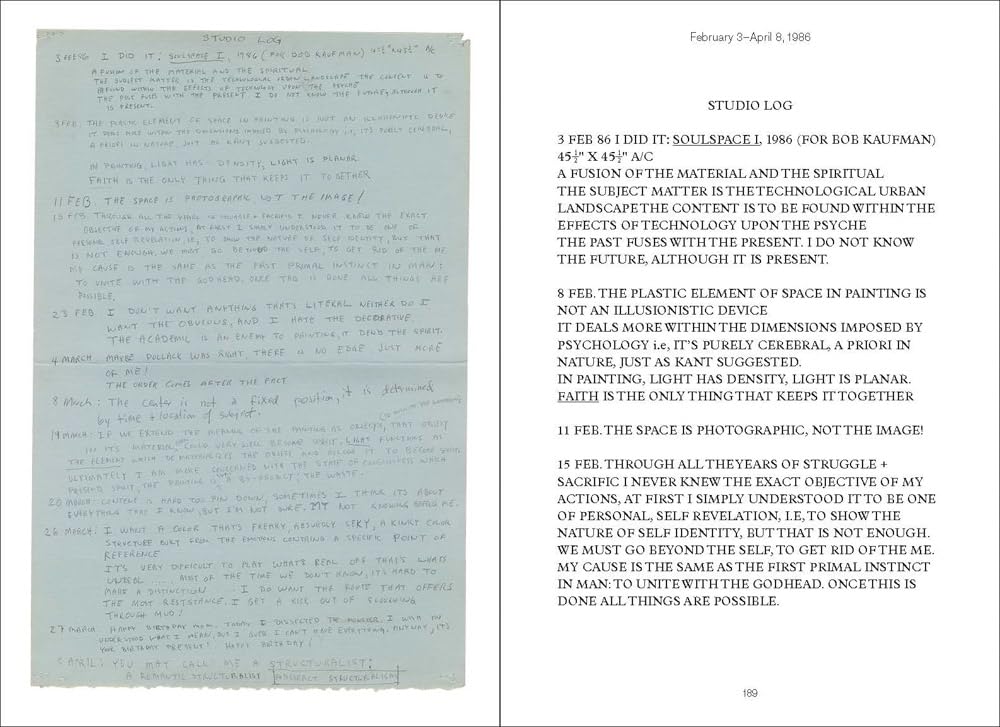 STUDIO LOG
3 FEB 86 I DID IT: SOULSPACE I, 1986 (FOR BOB KAUFMAN) 45½" X 45½" A/C
A FUSION OF THE MATERIAL AND THE SPIRITUAL
THE SUBJECT MATTER IS THE TECHNOLOGICAL URBAN LANDSCAPE THE CONTENT IS TO
BE FOUND WITHIN THE EFFECTS OF TECHNOLOGY UPON THE PSYCHE
THE PAST FUSES WITH THE PRESENT. I DO NOT KNOW THE FUTURE, ALTHOUGH IT
IS PRESENT.
FEB. THE PLASTIC ELEMENT OF SPACE IN PAINTING IS NOT AN ILLUSIONISTIC DEVICE
IT DEALS MORE WITHIN THE DIMENSIONS IMPOSED BY PSYCHOLOGY i.e, IT'S PURELY CEREBRAL,
A PRIORI IN NATURE, JUST AS KANT SUGGESTED.
IN PAINTING, LIGHT HAS DENSITY, LIGHT IS PLANAR.
FAITH IS THE ONLY THING THAT KEEPS IT TOGETHER
11 FEB. THE SPACE IS PHOTOGRAPHIC, NOT THE IMAGE!
15 FEB. THROUGH ALL THE YEARS OF STRUGGLE + SACRIFIC I NEVER KNEW THE EXACT
OBJECTIVE OF MY ACTIONS, AT FIRST I SIMPLY UNDERSTOOD IT TO BE ONE OF
PERSONAL, SELF REVELATION, I.E, TO SHOW THE NATURE OF SELF IDENTITY, BUT THAT
IS NOT ENOUGH. WE MUST GO BEYOND THE SELF, TO GET RID OF THE ME.
MY CAUSE IS THE SAME AS THE FIRST PRIMAL INSTINCT IN MAN:
TO UNITE WITH THE GODHEAD. ONCE THIS IS DONE ALL THINGS ARE
POSSIBLE.
23 FEB I DON'T WANT ANYTHING THAT'S LITERAL NEITHER DO I
WANT THE OBVIOUS, AND I HATE THE DECORATIVE.
THE ACADEMIC IS AN ENEMY TO PAINTING, IT DENDS THE SPIRIT.
4 MARCH MAYBE POLLACK WAS RIGHT, THERE IS NO EDGE JUST MORE
OF ME!
THE ORDER COMES AFTER THE FACT
8 March: The center is not a fixed position, it is determined
by time + location of subject.
19 MARCH: IF WE EXTEND THE MEANING OF THE PAINTING AS OBJECT, THAT OBJECT
IN ITS MATERIAL COULD VERY WELL BECOME SPIRIT. LIGHT FUNCTIONS AS
THE ELEMENT WHICH DEMATERIALIZES THE OBJECT AND ALLOWS IT TO BECOME SPIRIT.
ULTIMATELY I AM MORE CONCERNED WITH THE STATE OF CONSCIOUSNESS WHICH
SPIRIT, THE PAINTING IS A BY-PRODUCT; THE WASTE.
20 MARCH: CONTENT IS HARD TO PIN DOWN, SOMETIMES I THINK ITS ABOUT
EVERYTHING THAT I KNOW, BUT I'M NOT SURE. NOT KNOWING ME.
26 MARCH: I WANT A COLOR THAT'S FREAKY, ABSURDLY SEXY, A KINKY COLOR
STRUCTURE BUILT FROM THE EMOTIONS CONTAINING A SPECIFIC POINT OF
REFERENCE
IT'S VERY DIFFICULT TO PLAY WHAT'S REAL OFF THAT'S WHATS
UNREAL ..... MOST OF THE TIME WE DON'T KNOW, IT'S HARD TO
MAKE A DISTINCTION I DO WANT THE ROUTE THAT OFFERS
THE MOST RESISTANCE. I GET A KICK OUT OF SLOGGING
THROUGH MUD!
27 MARCH HAPPY BIRTHDAY MOM. TODAY I DISSECTED THE MONSTER. I WISH YOU
UNDERSTOOD WHAT I MEAN, BUT I GUESS I CAN'T HAVE EVERYTHING. ANYWAY, IT'S
YOUR BIRTHDAY PRESENT! HAPPY BIRTHDAY!
8 APRIL: YOU MAY CALL ME A STRUCTURALIST:
A ROMANTIC STRUCTURALIST ABSTRACT STRUCTURALISM
February 3–April 8, 1986
STUDIO LOG
3 FEB 86 I DID IT: SOULSPACE I, 1986 (FOR BOB KAUFMAN)
45½" X 45½" A/C
A FUSION OF THE MATERIAL AND THE SPIRITUAL
THE SUBJECT MATTER IS THE TECHNOLOGICAL URBAN
LANDSCAPE THE CONTENT IS TO BE FOUND WITHIN THE
EFFECTS OF TECHNOLOGY UPON THE PSYCHE
THE PAST FUSES WITH THE PRESENT. I DO NOT KNOW
THE FUTURE, ALTHOUGH IT IS PRESENT.
8 FEB. THE PLASTIC ELEMENT OF SPACE IN PAINTING IS
NOT AN ILLUSIONISTIC DEVICE
IT DEALS MORE WITHIN THE DIMENSIONS IMPOSED BY
PSYCHOLOGY i.e, IT'S PURELY CEREBRAL, A PRIORI IN
NATURE, JUST AS KANT SUGGESTED.
IN PAINTING, LIGHT HAS DENSITY, LIGHT IS PLANAR.
FAITH IS THE ONLY THING THAT KEEPS IT TOGETHER
11 FEB. THE SPACE IS PHOTOGRAPHIC, NOT THE IMAGE!
15 FEB. THROUGH ALL THE YEARS OF STRUGGLE +
SACRIFIC I NEVER KNEW THE EXACT OBJECTIVE OF MY
ACTIONS, AT FIRST I SIMPLY UNDERSTOOD IT TO BE ONE
OF PERSONAL, SELF REVELATION, I.E, TO SHOW THE
NATURE OF SELF IDENTITY, BUT THAT IS NOT ENOUGH.
WE MUST GO BEYOND THE SELF, TO GET RID OF THE ME.
MY CAUSE IS THE SAME AS THE FIRST PRIMAL INSTINCT
IN MAN: TO UNITE WITH THE GODHEAD. ONCE THIS IS
DONE ALL THINGS ARE POSSIBLE.
189